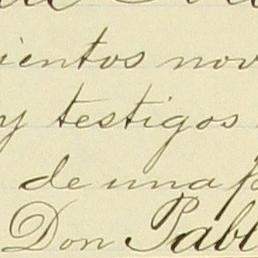 ientos nov
y testigos
de una p
Don Pabl